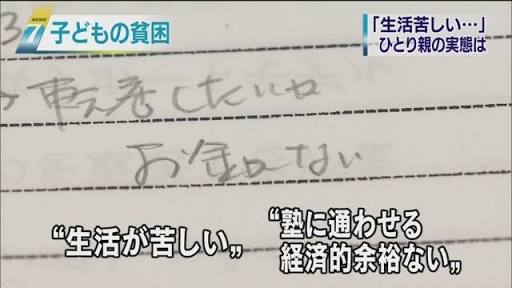 NEWS
7 子どもの貧困
「生活苦しい…」
ひとり親の実態は
したいが
お金がない
“生活が苦しい„
“塾に通わせる
経済的余裕ない„